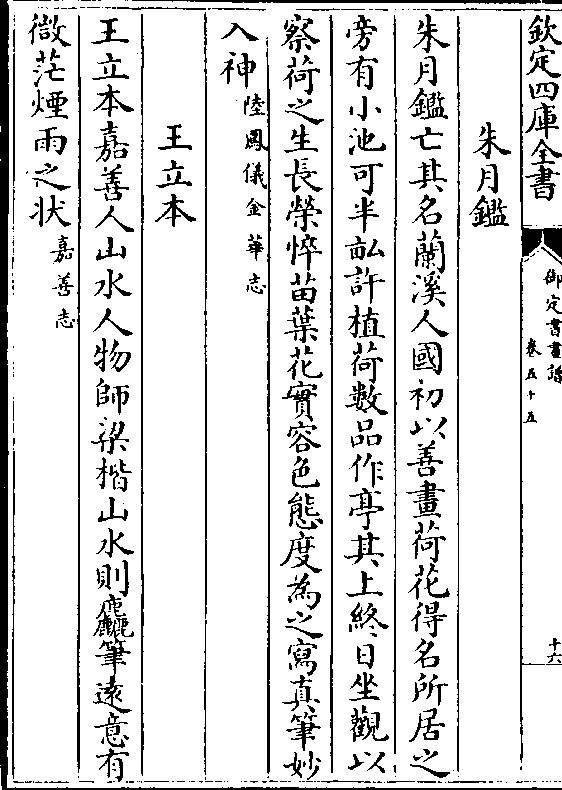 欽定四庫全書
御定書畫譜
卷五十五
十六
朱月鑑
朱月鑑亡其名蘭溪人國初以善畫荷花得名所居之
旁有小池可半畝許植荷數品作亭其上終日坐觀以
察荷之生長榮悴苗葉花實容色態度為之寫真筆妙
入神陸鳳儀金華志
王立本
王立本嘉善人山水人物師梁楷山水則麤筆遠意有
微茫煙雨之狀嘉善志